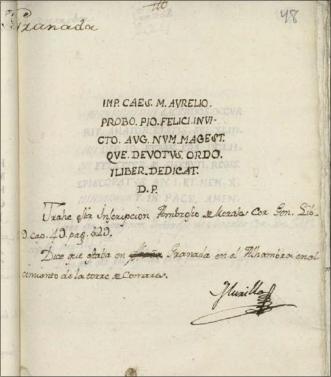 110
48
Granada
IMP. CAES. M. AVRELIO.
PROBO. PIO. FELICI. INVI-
CTO. AVG. NVM. MAGEST.
QVE. DEVOTVS. ORDO.
ILIBER. DEDICAT.
D. P.
Trahe esta Inscripcion Ambrosio de Morales Cor. Gen. Lib.
9. cap. 49. pag. 320.
Dice que estaba en Granada en el Alhambra en el
cimiento de la torre de Comares.